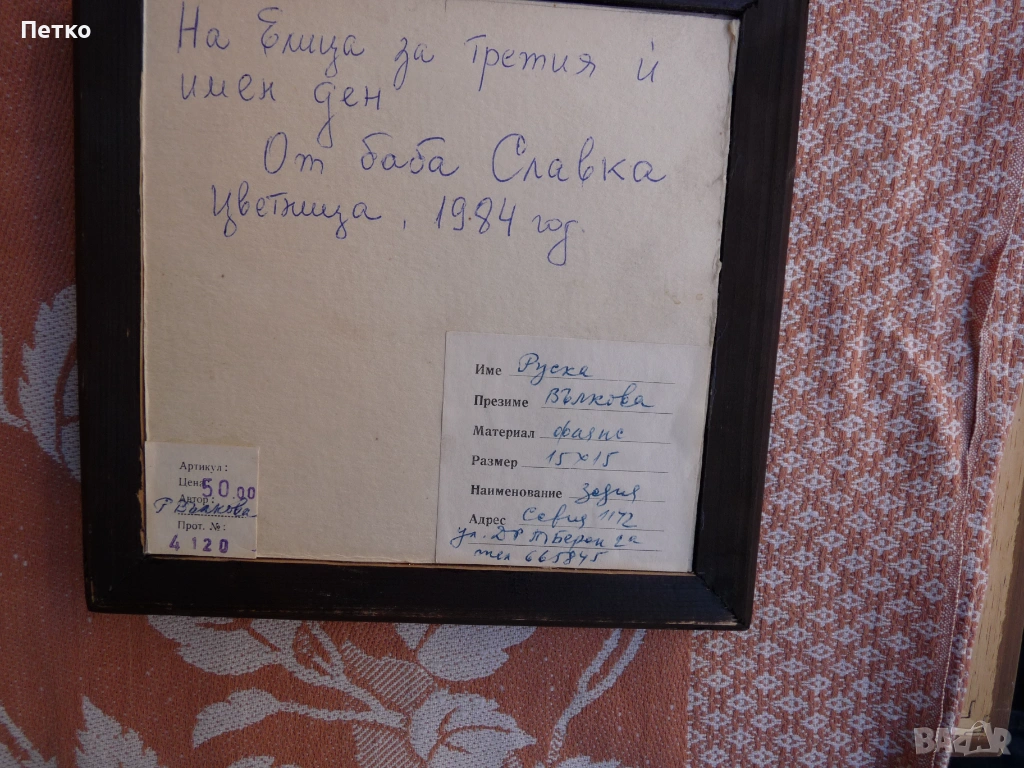 Петко
На Елица за третия ѝ
имен ден
От баба Славка
Цветница, 1984 год.
Име Руска
Презиме Вълкова
Материал фаянс
Размер 15x15
Наименование зодия
Адрес София 1172
ул. Д-р П Берон 2а
тел 665845
Артикул:
Цена 50.00
Автор:
Р Вълкова
Прот. №:
4 120
BAZAR